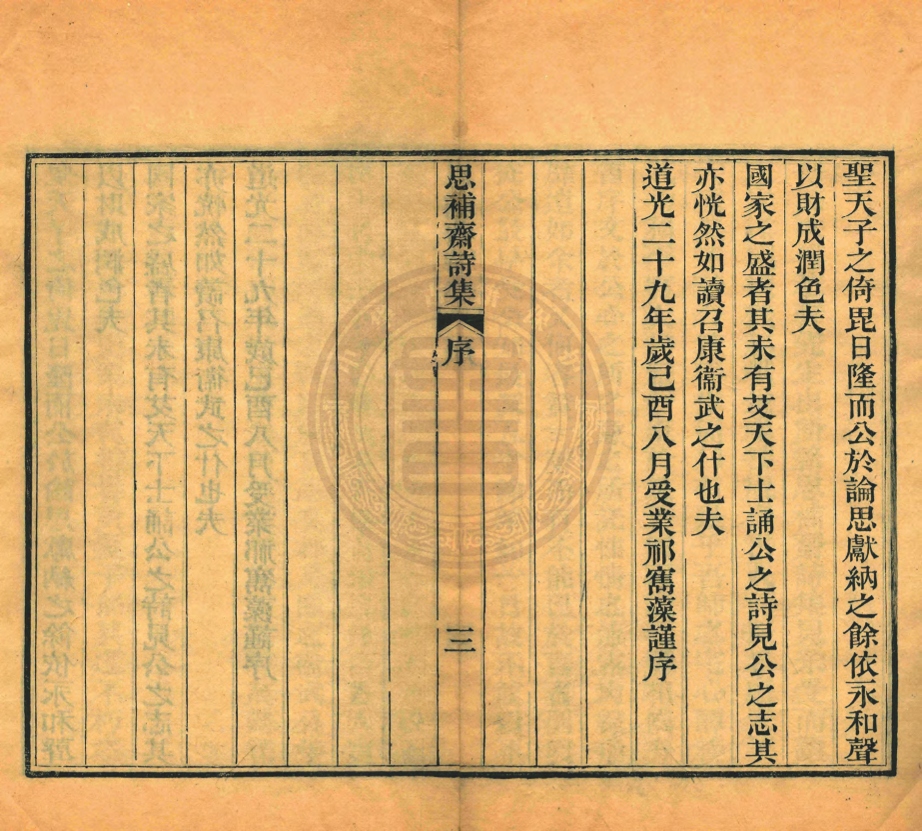 聖天子之倚毘日隆而公於論思獻納之餘依永和聲
以財成潤色夫
國家之盛者其未有艾天下士誦公之詩見公之志其
亦恍然如讀召康衞武之什也夫
道光二十九年歲己酉八月受業祁寯藻謹序
思補齋詩集
序
三